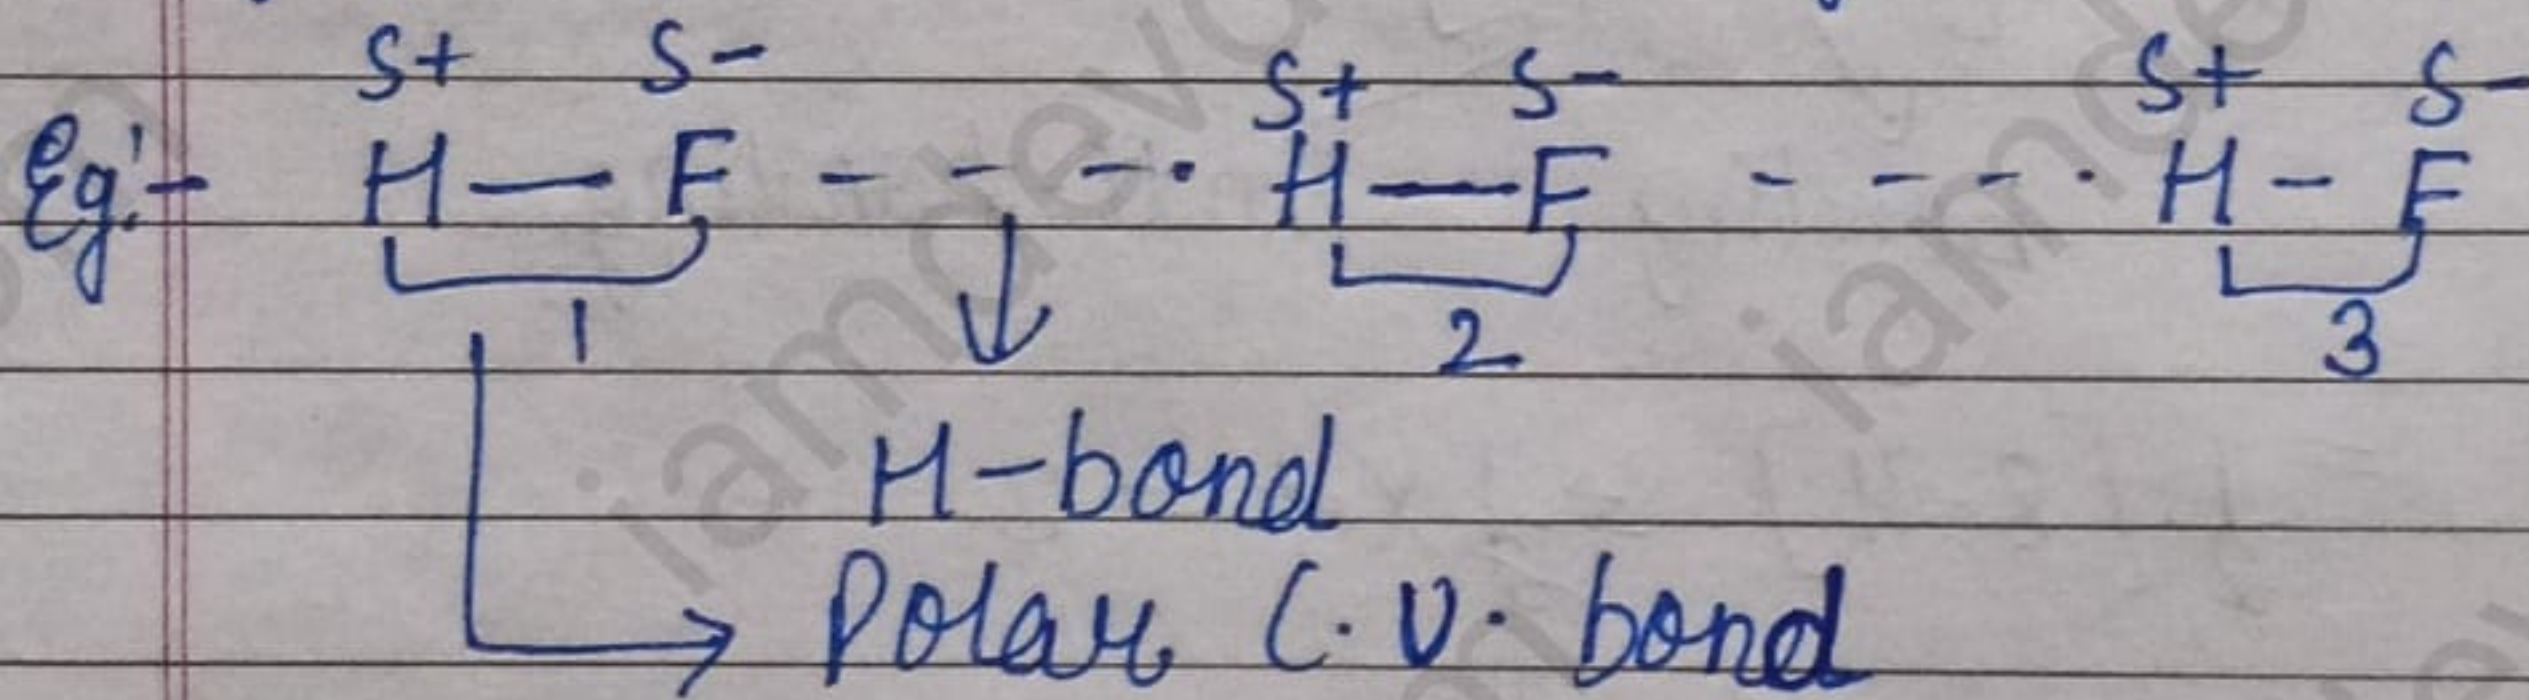 S+ S- S+ S- S+ S-
Eg:- H — F - - - - H — F - - - - H - F
1 2 3
H-bond
Polar C.V. bond